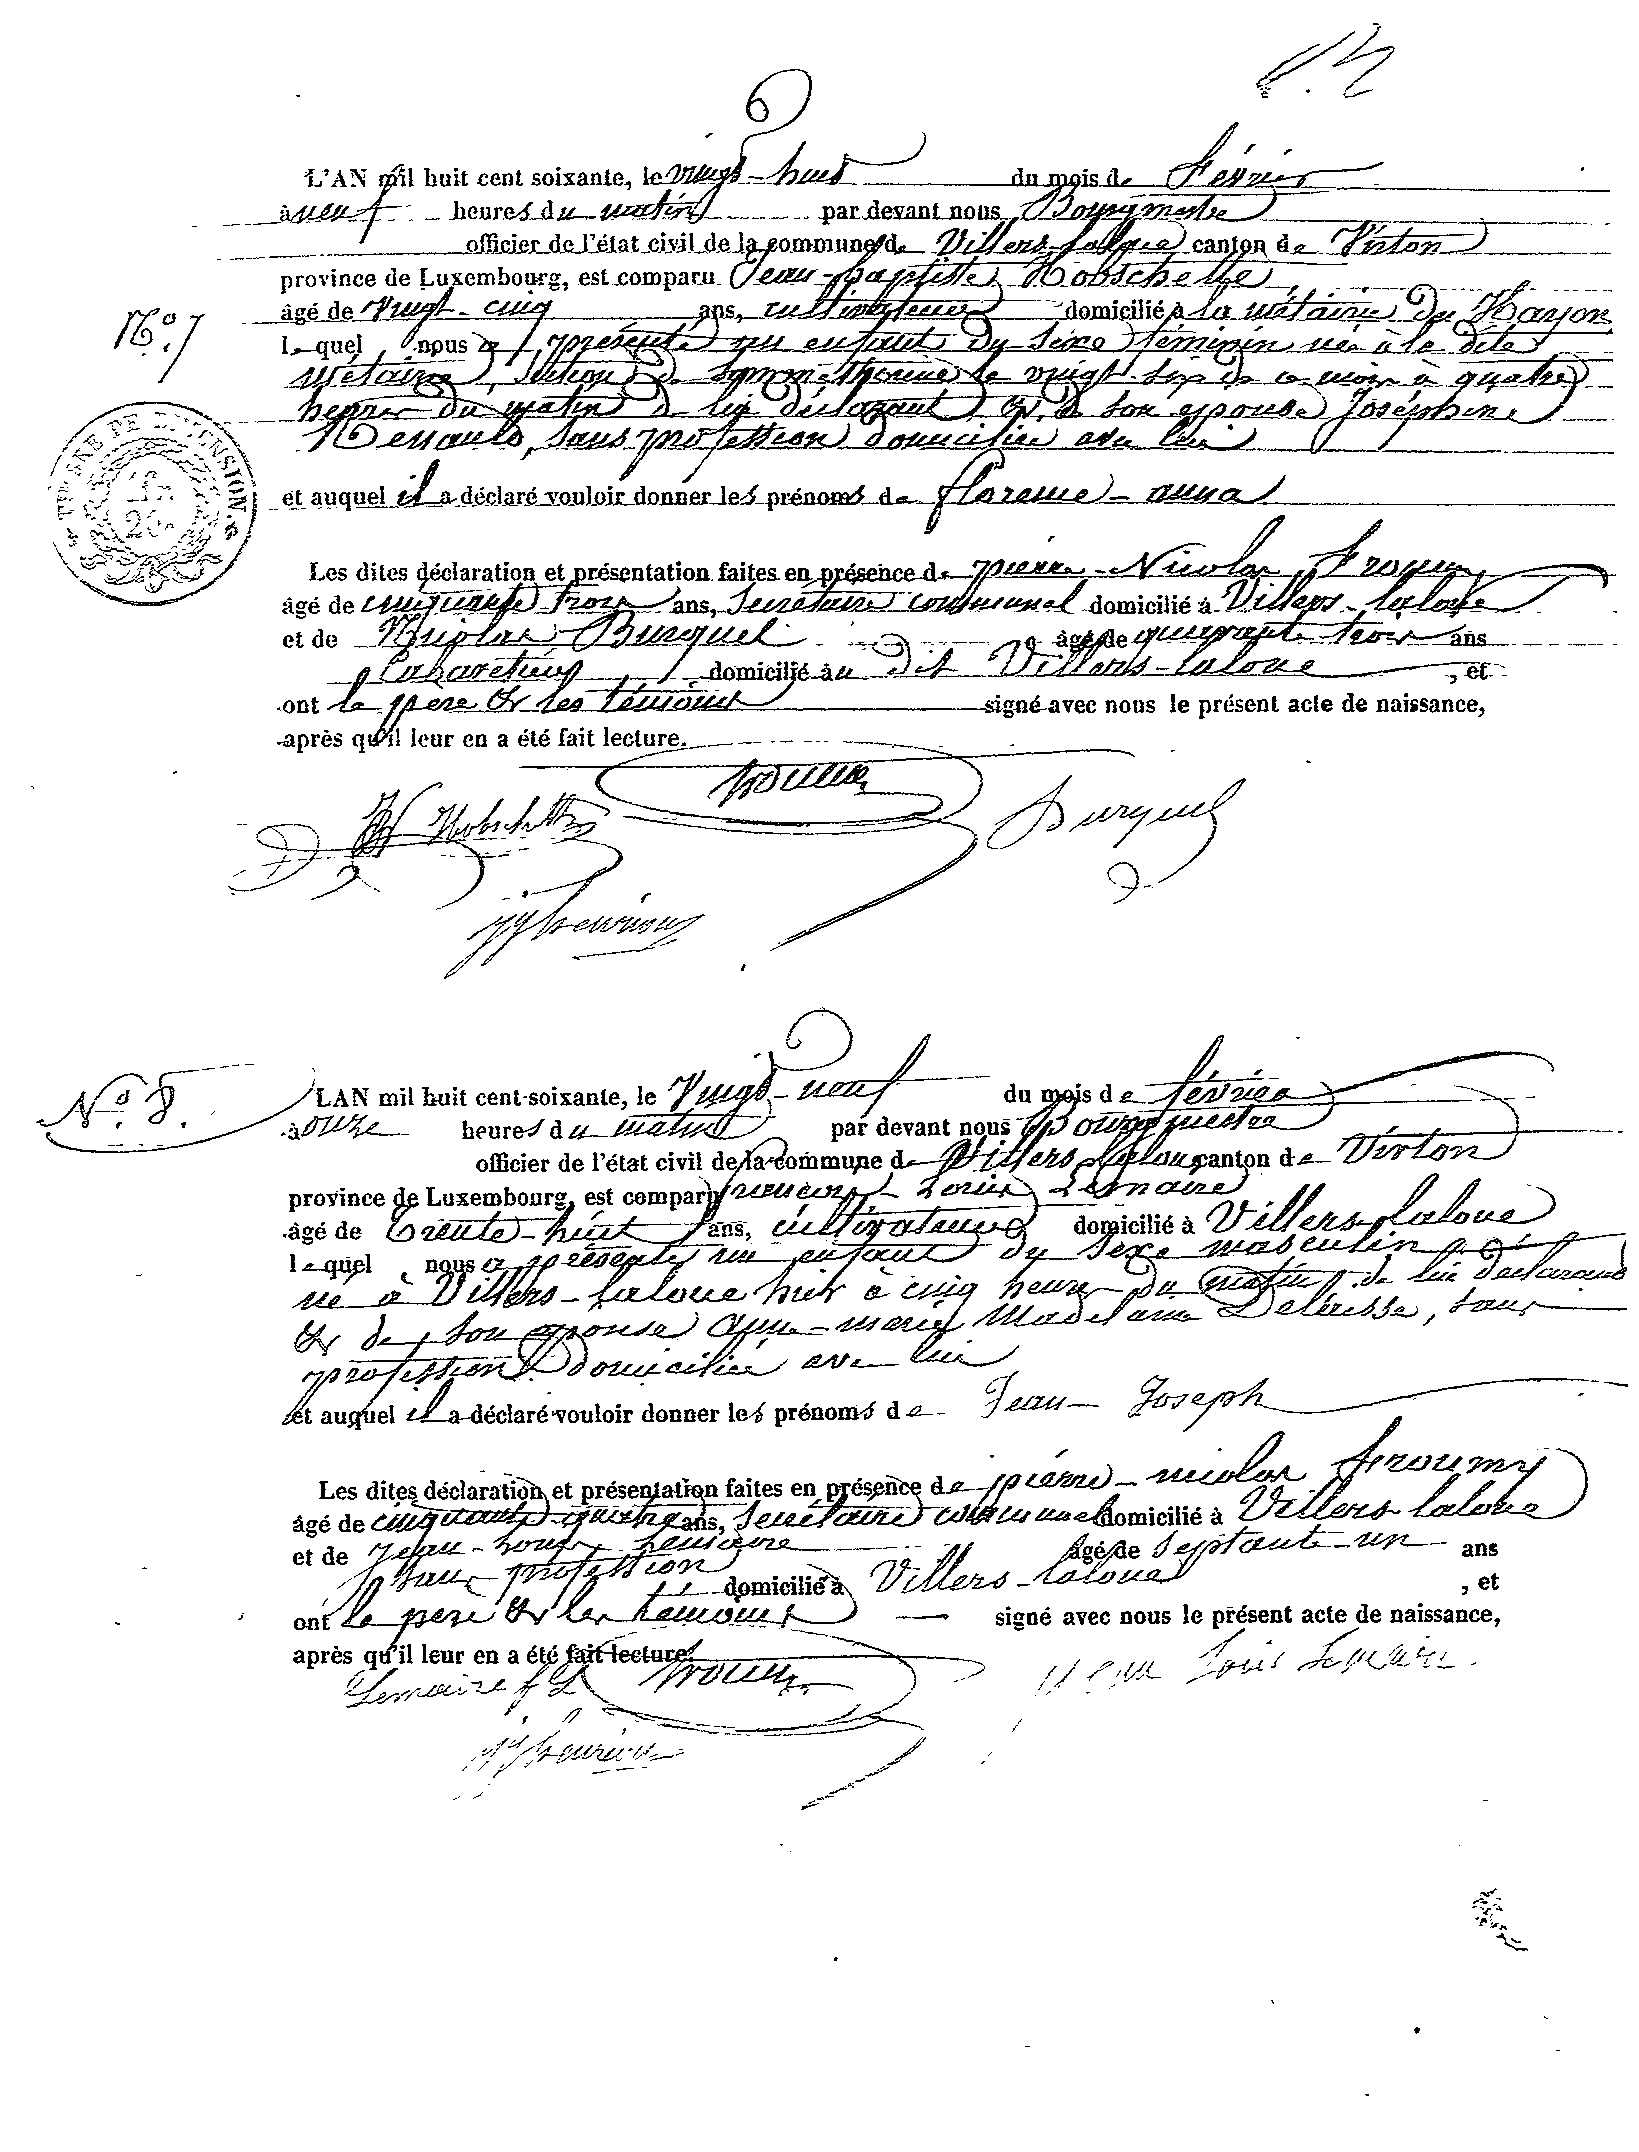 6
L'AN mil huit cent soixante, le vingt-huit du mois de février
à neuf heures du matin par devant nous Bourgmestre
officier de l'état civil de la commune de Villers-laloue canton de Virton
province de Luxembourg, est comparu Jean-baptiste Hobschette
âgé de vingt-cinq ans, cultivateur domicilié à la métairie du Harjon
N.° 7
lequel nous a présenté un enfant du sexe féminin née à la dite
métairie, section de sommethonne le vingt six de ce mois à quatre
heures du matin de lui déclarant & de son épouse Joséphine
sans profession domiciliée avec lui
et auquel il a déclaré vouloir donner les prénoms de florence-anna
Les dites déclaration et présentation faites en présence de pierre-Nicolas
âgé de cinquante trois ans, Secrétaire communal domicilié à Villers-laloue
et de Nicolas Burquel âgé de quarante trois ans
Cabaretier domicilié au dit Villers-laloue, et
ont le père & les témoins signé avec nous le présent acte de naissance,
après qu'il leur en a été fait lecture.
Hobschette
Burquel
N.° 8.
L'AN mil huit cent soixante, le Vingt-neuf du mois de février
à onze heures du matin par devant nous Bourgmestre
officier de l'état civil de la commune de Villers-laloue canton de Virton
province de Luxembourg, est comparu françois-Louis Lemaire
âgé de trente-huit ans, cultivateur domicilié à Villers-laloue
lequel nous a présenté un enfant du sexe masculin
né à Villers-laloue hier à cinq heures du matin de lui déclarant
& de son épouse Anne-marie Madelaine sans
profession domiciliée avec lui
et auquel il a déclaré vouloir donner les prénoms de Jean-Joseph
Les dites déclaration et présentation faites en présence de pierre-nicolas
âgé de cinquante quatre ans, Secrétaire communal domicilié à Villers-laloue
et de Jean-Louis Lemaire âgé de Septante-un ans
sans profession domicilié à Villers-laloue, et
ont le père & les témoins signé avec nous le présent acte de naissance,
après qu'il leur en a été fait lecture.
Lemaire f L
Louis Lemaire